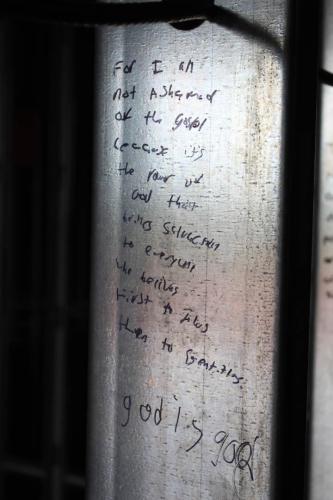 For I am
not Ashamed
of the gospel
because it's
the power of
God that
brings Salvation
to everyone
who believes
First to Jews
then to Gentiles.
god is good